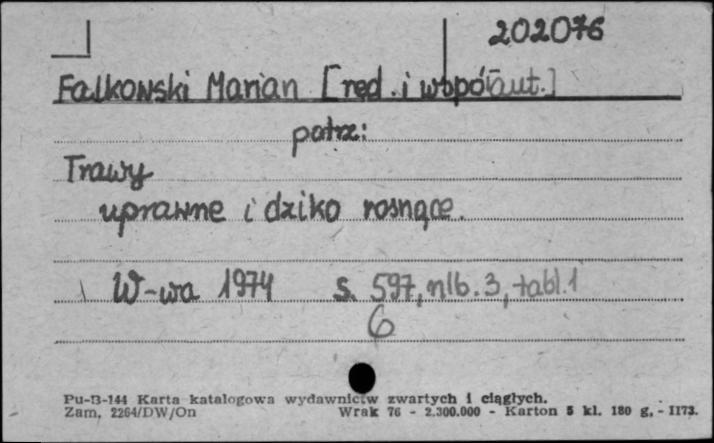 202076
Falkowski Marian [red. i współaut.]
patrz:
Trawy
uprawne i dziko rosnące.
W-wa 1974 s. 597, nlb. 3, tabl. 1
6
Pu-B-144 Karta katalogowa wydawnictw zwartych i ciągłych.
Zam. 2264/DW/On Wrak 76 - 2.300.000 - Karton 5 kl. 180 g. - II73.